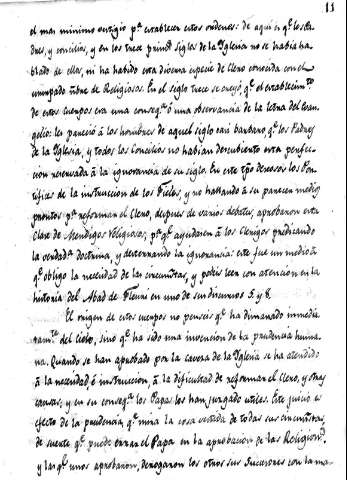 11
el mas minimo vestigio pª establecer estos ordenes: de aqui es qº los Pa-
dres, y concilios, y en los trece primºs siglos de la Iglesia no se havia ha-
blado de ellas, ni ha habido esta diosma especie de Clero conocida con el
usurpado nbre de Religiosos. En el siglo trece se creyó, qº el establecimtº
de estos cuerpos era una conseqª ó una observancia de la letra del Evan-
gelio: les pareció á los hombres de aquel siglo tan barbaro, qº los Padres
de la Iglesia, y todos los Concilios no habian descubierto esta perfec-
cion reservada á la ignorancia de su siglo. En este tpo deseosos los Pon-
tifices de la instruccion de los Fieles, y no hallando á su parecer medios
prontos pª reformar el Clero, despues de varios debates, aprobaron esta
clase de Mendigos religiosos, pª qº ayudaren á los Clerigos predicando
la verdadª doctrina, y desterrando la ignorancia: este fue un medio á
qº obligo la necesidad de las circunstªs, y podeis leer con atencion en la
historia del Abad de Fleuri en uno de sus discursos 5. y 8.
El origen de estos cuerpos no penseis qº ha dimanado inmedia-
tamtº del Cielo, sino qº ha sido una invencion de la prudencia huma-
na. Quando se han aprobado por la cavesa de la Iglesia se ha atendido
á la necesidad é instruccion, á la dificultad de reformar el Clero, y otras
causas; y en su conseqª los Papas los han juzgado utiles. Este juicio es
efecto de la prudencia, qº mira la cosa vestida de todas sus circunstªs,
de suerte qº puede errar el Papa en la aprobacion de las Religions.
y las qº unos aprobaron, derogaron los otros sus sucesores con la ma-